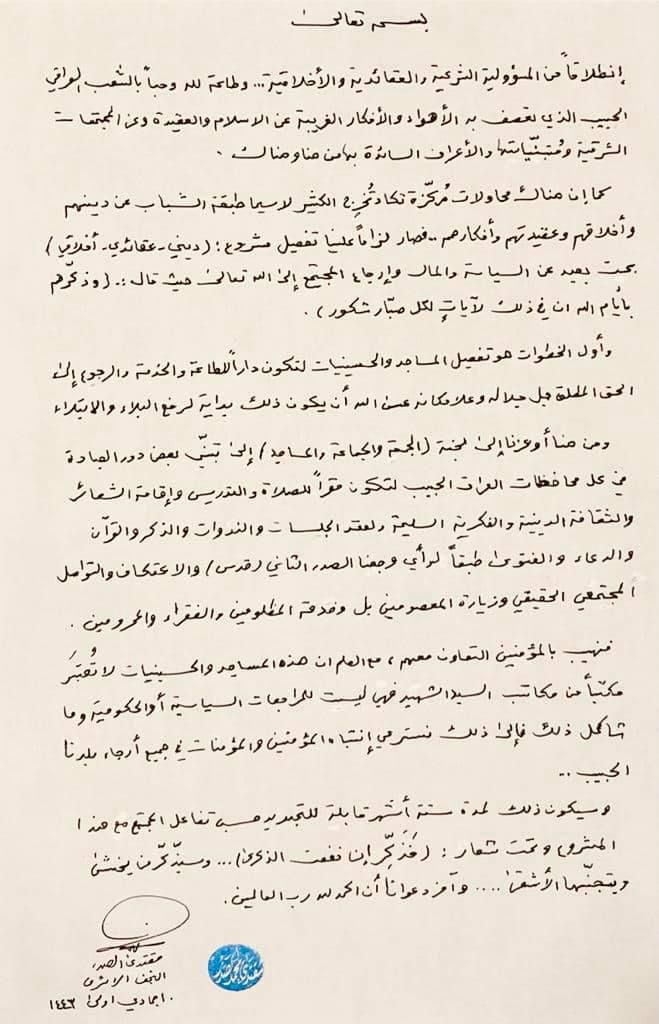 بسمه تعالى
إنطلاقاً من المسؤولية الشرعية والعقائدية والأخلاقية... وطاعة لله وحباً بالشعب العراقي
الحبيب الذي تعصف به الأهواء والأفكار الغريبة عن الاسلام والعقيدة وعن المجتمعات
الشرقية ومُتبنّياتها والأعراف السائدة بها من هنا وهناك .
كما إن هناك محاولات مُركّزة تكاد تُخرج الكثير لاسيما طبقة الشباب عن دينهم
وأخلاقهم وعقيدتهم وأفكارهم .. فصار لزاماً علينا تفعيل مشروع : (ديني - عقائدي - أخلاقي)
بحت بعيد عن السياسة والمال وإرجاع المجتمع إلى الله تعالى حيث قال :. (وذكّرهم
بأيام الله ان في ذلك لآياتٍ لكل صبّار شكور) .
وأول الخطوات هو تفعيل المساجد والحسينيات لتكون داراً للطاعة والخدمة والرجوع إلى
الحق المطلق جل جلاله وعلا مكانه عسى الله أن يكون ذلك بداية لرفع البلاء والابتلاء
ومن هنا أوعزنا إلى لجنة (الجمعة والجماعة والمساجد) إلى تبنّي بعض دور العبادة
في كل محافظات العراق الحبيب لتكون مقراً للصلاة والتدريس وإقامة الشعائر
والثقافة الدينية والفكرية السليمة ولعقد الجلسات والندوات والذكر والقرآن
والدعاء والفتوى طبقاً لرأي مرجعنا الصدر الثاني (قدس) والاعتكاف والتواصل
المجتمعي الحقيقي وزيارة المعصومين بل وخدمة المظلومين والفقراء والمحرومين .
فنهيب بالمؤمنين التعاون معهم ، مع العلم ان هذه المساجد والحسينيات لا تُعتبَر
مكتباً من مكاتب السيد الشهيد فهي ليست للمراجعات السياسية أو الحكومية وما
شاكل ذلك فإلى ذلك نسترعي إنتباه المؤمنين والمؤمنات في جميع أرجاء بلدنا
الحبيب ..
وسيكون ذلك لمدة ستة أشهر قابلة للتجديد حسب تفاعل المجتمع مع هذا
المشروع وتحت شعار : (فَذَكِّر إن نفعت الذكرى) ... وسيذّكّر من يخشى
ويتجنّبها الأشقى .... وآخر دعوانا أن الحمد لله رب العالمين .
مقتدى الصدر
النجف الاشرف
١٠ جمادي اولى ١٤٤٣
مقتدى محمد الصدر